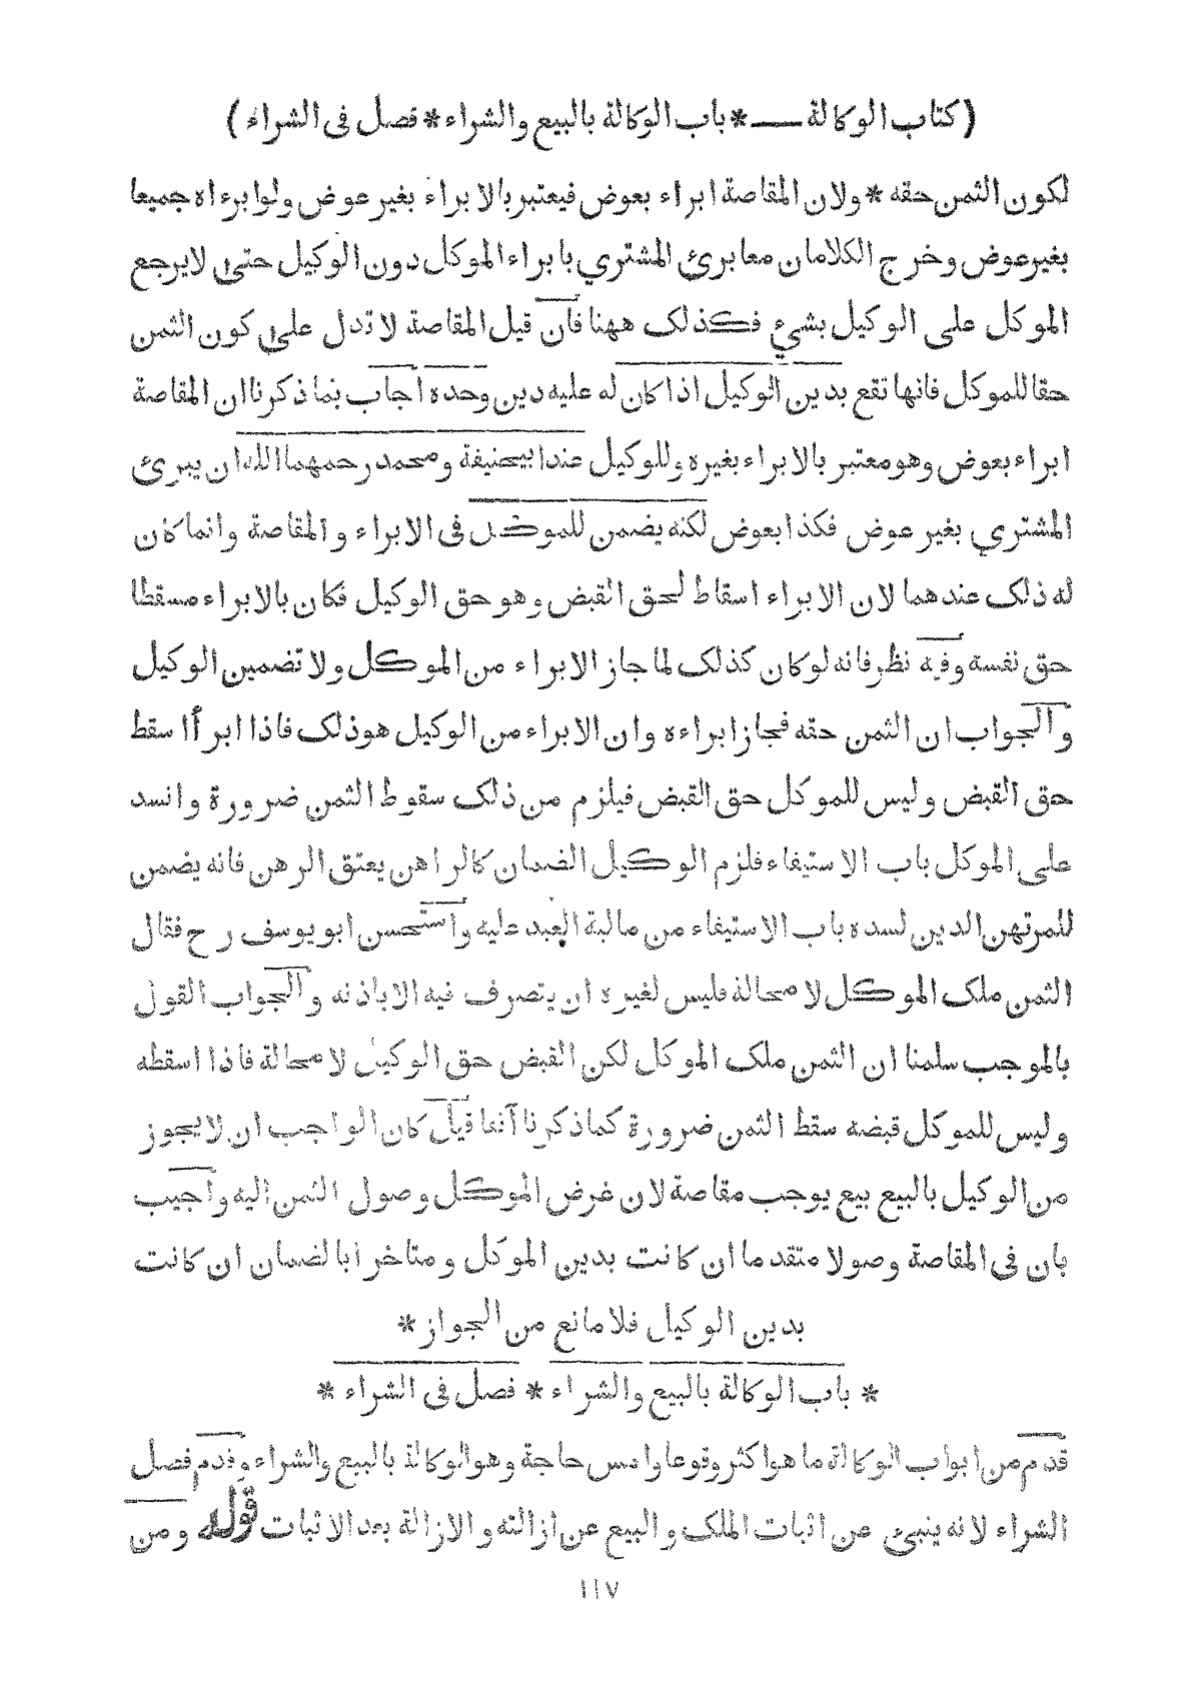 ( كتاب الوكالة ـــ * باب الوكالة بالبيع والشراء * فصل فى الشراء )
لكون الثمن حقه * ولان المقاصة ابراء بعوض فيعتبر بالابراء بغير عوض ولو ابرءاه جميعا
بغير عوض وخرج الكلامان معا برئ المشتري بابراء الموكل دون الوكيل حتى لا يرجع
الموكل على الوكيل بشيء فكذلك ههنا فان قيل المقاصة لا تدل على كون الثمن
حقا للموكل فانها تقع بدين الوكيل اذا كان له عليه دين وحده اجاب بما ذكرنا ان المقاصة
ابراء بعوض وهو معتبر بالابراء بغيره وللوكيل عند ابيحنيفة ومحمد رحمهما الله ان يبرئ
المشتري بغير عوض فكذا بعوض لكنه يضمن للموكل فى الابراء والمقاصة وانما كان
له ذلك عندهما لان الابراء اسقاط لحق القبض وهو حق الوكيل فكان بالابراء مسقطا
حق نفسه وفيه نظر فانه لو كان كذلك لما جاز الابراء من الموكل ولا تضمين الوكيل
والجواب ان الثمن حقه فجاز ابراءه وان الابراء من الوكيل هو ذلك فاذا ابرأ اسقط
حق القبض وليس للموكل حق القبض فيلزم من ذلك سقوط الثمن ضرورة وانسد
على الموكل باب الاستيفاء فلزم الوكيل الضمان كالراهن يعتق الرهن فانه يضمن
للمرتهن الدين لسده باب الاستيفاء من مالية العبد عليه واستحسن ابو يوسف رح فقال
الثمن ملك الموكل لا محالة فليس لغيره ان يتصرف فيه الا باذنه والجواب القول
بالموجب سلمنا ان الثمن ملك الموكل لكن القبض حق الوكيل لا محالة فاذا اسقطه
وليس للموكل قبضه سقط الثمن ضرورة كما ذكرنا آنفا قيل كان الواجب ان لا يجوز
من الوكيل بالبيع بيع يوجب مقاصة لان غرض الموكل وصول الثمن اليه واجيب
بان فى المقاصة وصولا متقدما ان كانت بدين الموكل ومتاخرا بالضمان ان كانت
بدين الوكيل فلا مانع من الجواز *
* باب الوكالة بالبيع والشراء * فصل فى الشراء *
قدم من ابواب الوكالة ما هو اكثر وقوعا وامس حاجة وهو الوكالة بالبيع والشراء وقدم فصل
الشراء لانه ينبئ عن اثبات الملك والبيع عن ازالته والازالة بعد الاثبات قوله ومن
١١٧